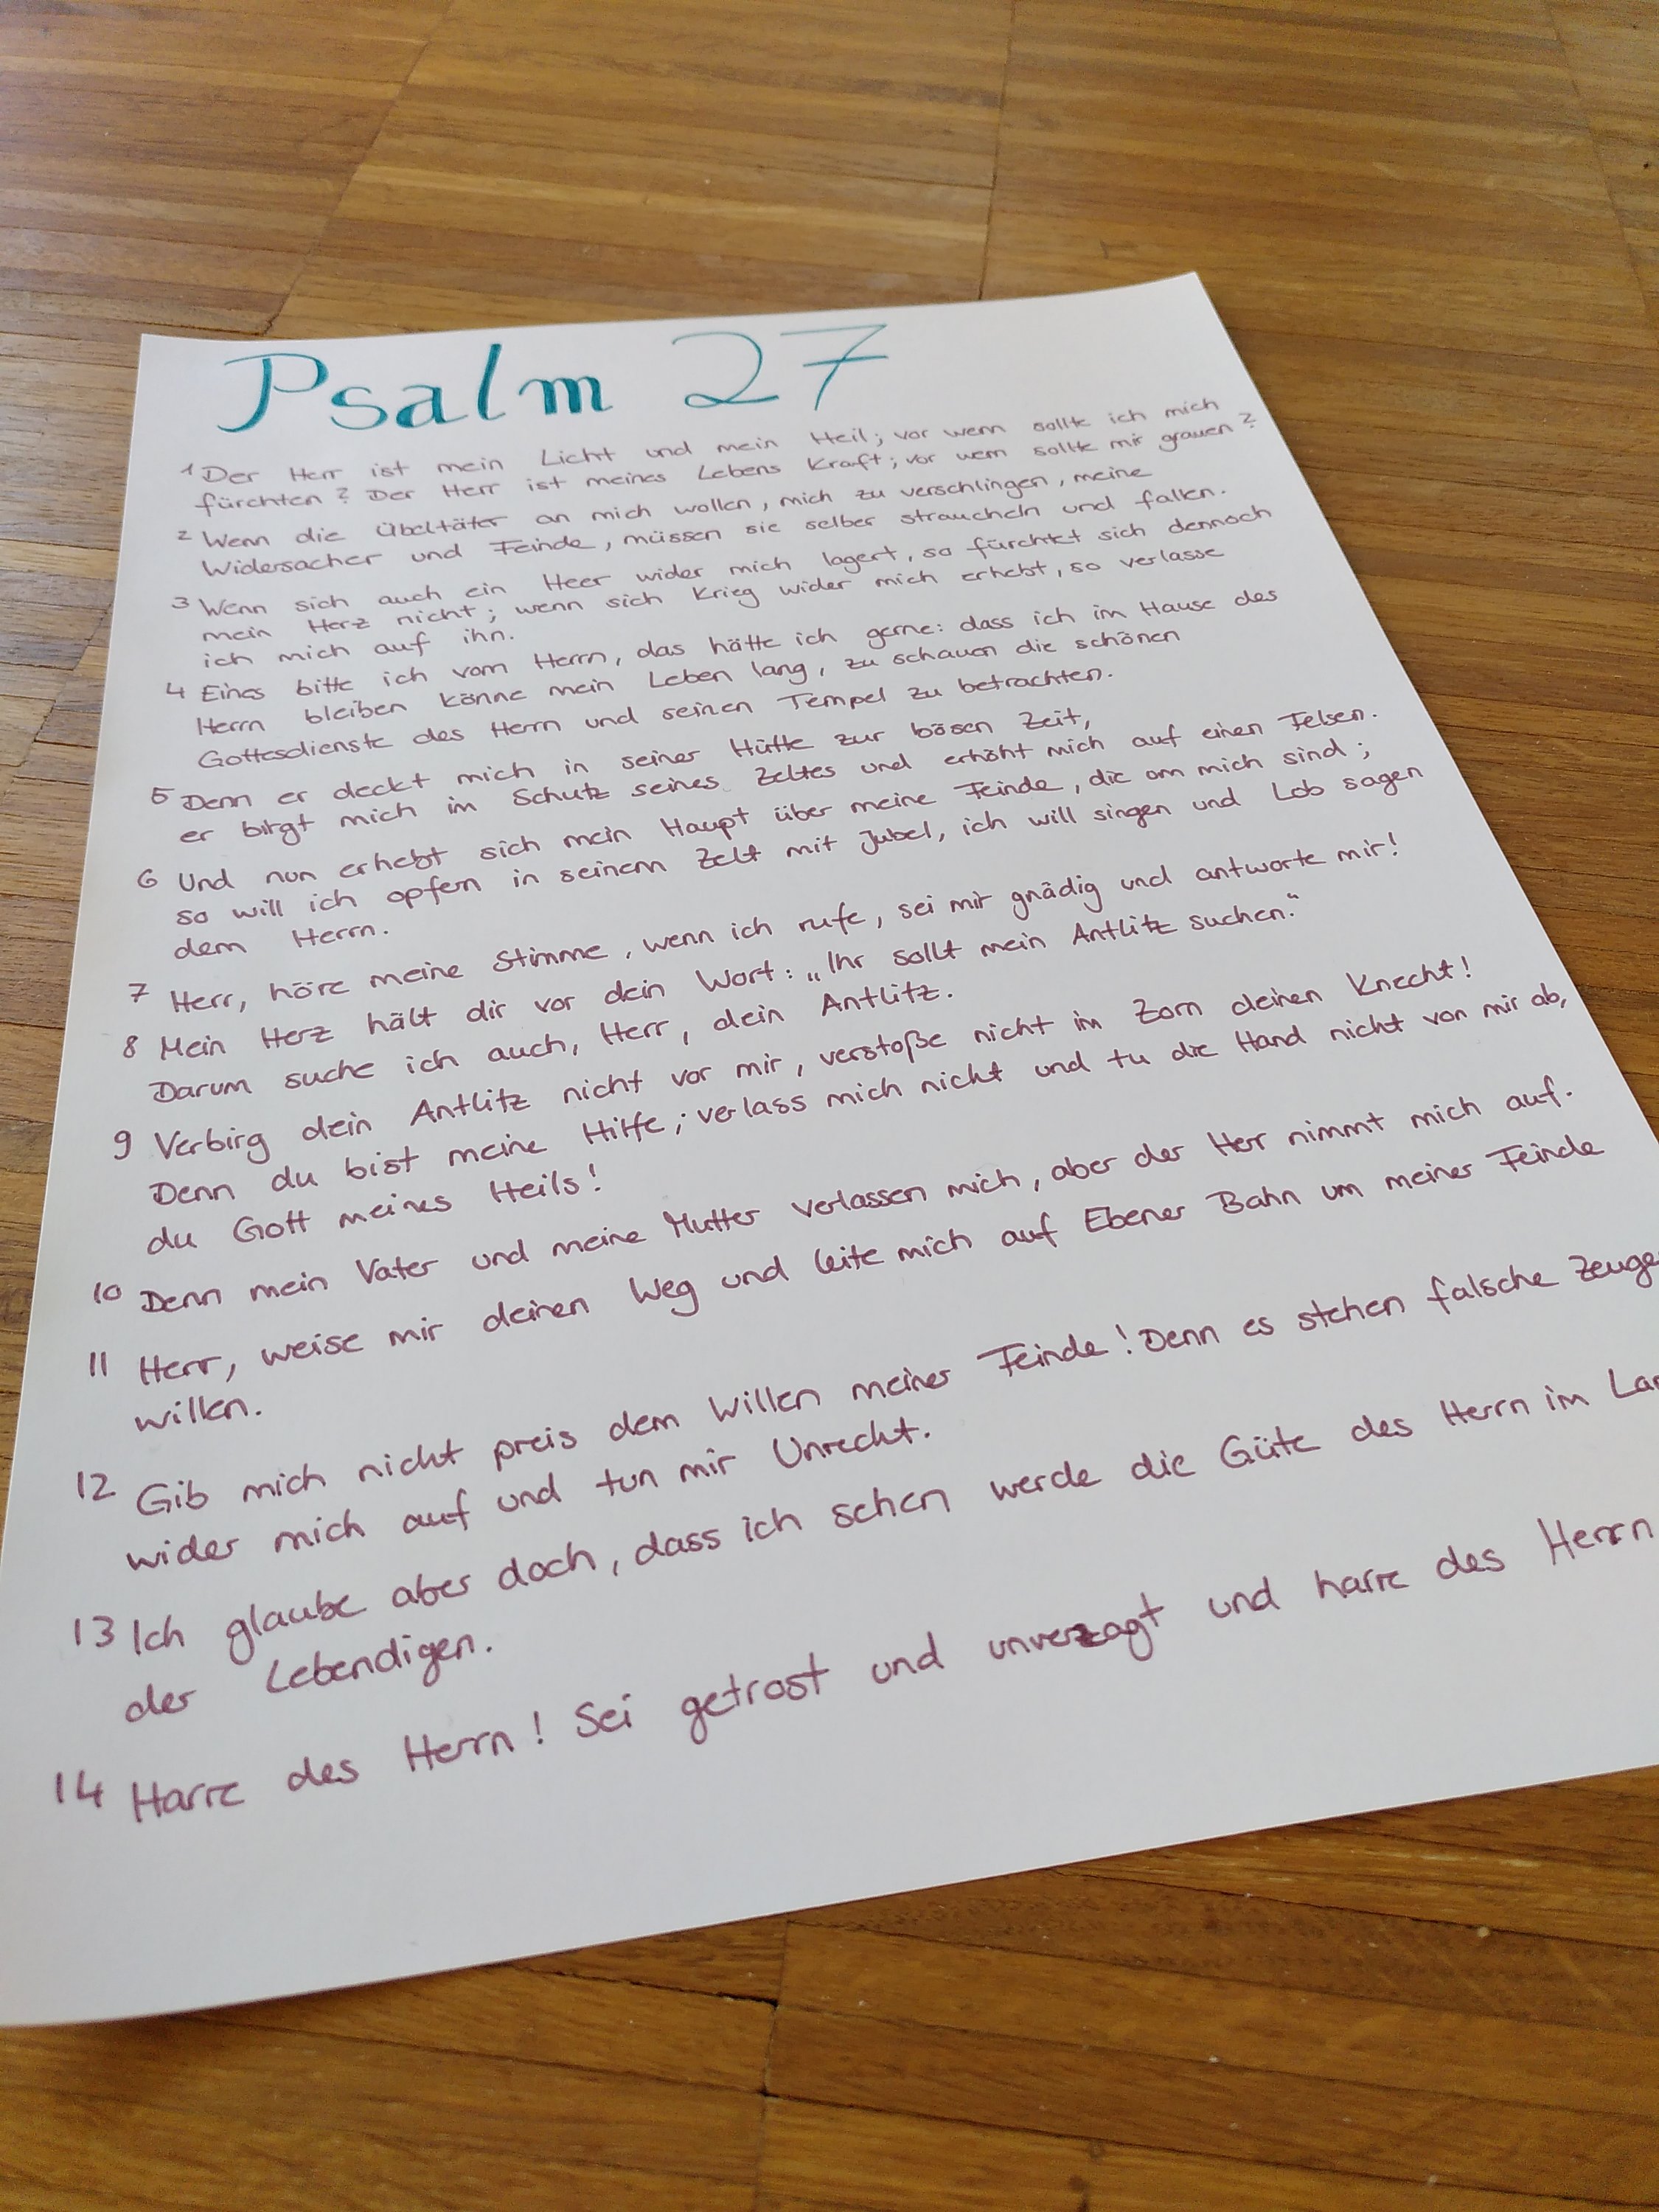 Psalm 27
1 Der Herr ist mein Licht und mein Heil; vor wem sollte ich mich
fürchten? Der Herr ist meines Lebens Kraft; vor wem sollte mir grauen?
2 Wenn die Übeltäter an mich wollen, mich zu verschlingen, meine
Widersacher und Feinde, müssen sie selber straucheln und fallen.
3 Wenn sich auch ein Heer wider mich lagert, so fürchtet sich dennoch
mein Herz nicht; wenn sich Krieg wider mich erhebt, so verlasse
ich mich auf ihn.
4 Eines bitte ich vom Herrn, das hätte ich gerne: dass ich im Hause des
Herrn bleiben könne mein Leben lang, zu schauen die schönen
Gottesdienste des Herrn und seinen Tempel zu betrachten.
5 Denn er deckt mich in seiner Hütte zur bösen Zeit,
er birgt mich im Schutz seines Zeltes und erhöht mich auf einen Felsen.
6 Und nun erhebt sich mein Haupt über meine Feinde, die um mich sind;
so will ich opfern in seinem Zelt mit Jubel, ich will singen und Lob sagen
dem Herrn.
7 Herr, höre meine Stimme, wenn ich rufe, sei mir gnädig und antworte mir!
8 Mein Herz hält dir vor dein Wort: „Ihr sollt mein Antlitz suchen."
Darum suche ich auch, Herr, dein Antlitz.
9 Verbirg dein Antlitz nicht vor mir, verstoße nicht im Zorn deinen Knecht!
Denn du bist meine Hilfe; verlass mich nicht und tu die Hand nicht von mir ab,
du Gott meines Heils!
10 Denn mein Vater und meine Mutter verlassen mich, aber der Herr nimmt mich auf.
11 Herr, weise mir deinen Weg und leite mich auf Ebener Bahn um meiner Feinde
willen.
12 Gib mich nicht preis dem Willen meiner Feinde! Denn es stehen falsche Zeuge
wider mich auf und tun mir Unrecht.
13 Ich glaube aber doch, dass ich sehen werde die Güte des Herrn im La
der Lebendigen.
14 Harre des Herrn! Sei getrost und unverzagt und harre des Herrn